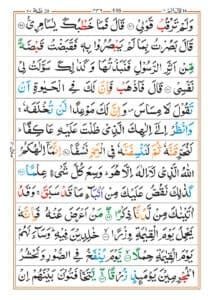 وَلَمْ تَرْقُبْ قَوْلِيْ ۝ قَالَ فَمَا خَطْبُكَ يٰسَامِرِيُّ ۝
قَالَ بَصُرْتُ بِمَا لَمْ يَبْصُرُوْا بِهٖ فَقَبَضْتُ قَبْضَةً
مِّنْ اَثَرِ الرَّسُوْلِ فَنَبَذْتُهَا وَكَذٰلِكَ سَوَّلَتْ لِيْ
نَفْسِيْ ۝ قَالَ فَاذْهَبْ فَاِنَّ لَكَ فِي الْحَيٰوةِ اَنْ
تَقُوْلَ لَا مِسَاسَ ۪ وَاِنَّ لَكَ مَوْعِدًا لَّنْ تُخْلَفَهٗ ۚ
وَانْظُرْ اِلٰٓى اِلٰهِكَ الَّذِيْ ظَلْتَ عَلَيْهِ عَاكِفًا ؕ
لَنُحَرِّقَنَّهٗ ثُمَّ لَنَنْسِفَنَّهٗ فِي الْيَمِّ نَسْفًا ۝ اِنَّمَاۤ اِلٰهُكُمُ
اللّٰهُ الَّذِيْ لَاۤ اِلٰهَ اِلَّا هُوَ ؕ وَسِعَ كُلَّ شَيْءٍ عِلْمًا ۝
كَذٰلِكَ نَقُصُّ عَلَيْكَ مِنْ اَنْۢبَآءِ مَا قَدْ سَبَقَ ۚ وَقَدْ
اٰتَيْنٰكَ مِنْ لَّدُنَّا ذِكْرًا ۝ مَنْ اَعْرَضَ عَنْهُ فَاِنَّهٗ
يَحْمِلُ يَوْمَ الْقِيٰمَةِ وِزْرًا ۝ خٰلِدِيْنَ فِيْهِ ؕ وَسَآءَ لَهُمْ
يَوْمَ الْقِيٰمَةِ حِمْلًا ۝ يَوْمَ يُنْفَخُ فِي الصُّوْرِ وَنَحْشُرُ
الْمُجْرِمِيْنَ يَوْمَئِذٍ زُرْقًا ۝ يَتَخَافَتُوْنَ بَيْنَهُمْ اِنْ